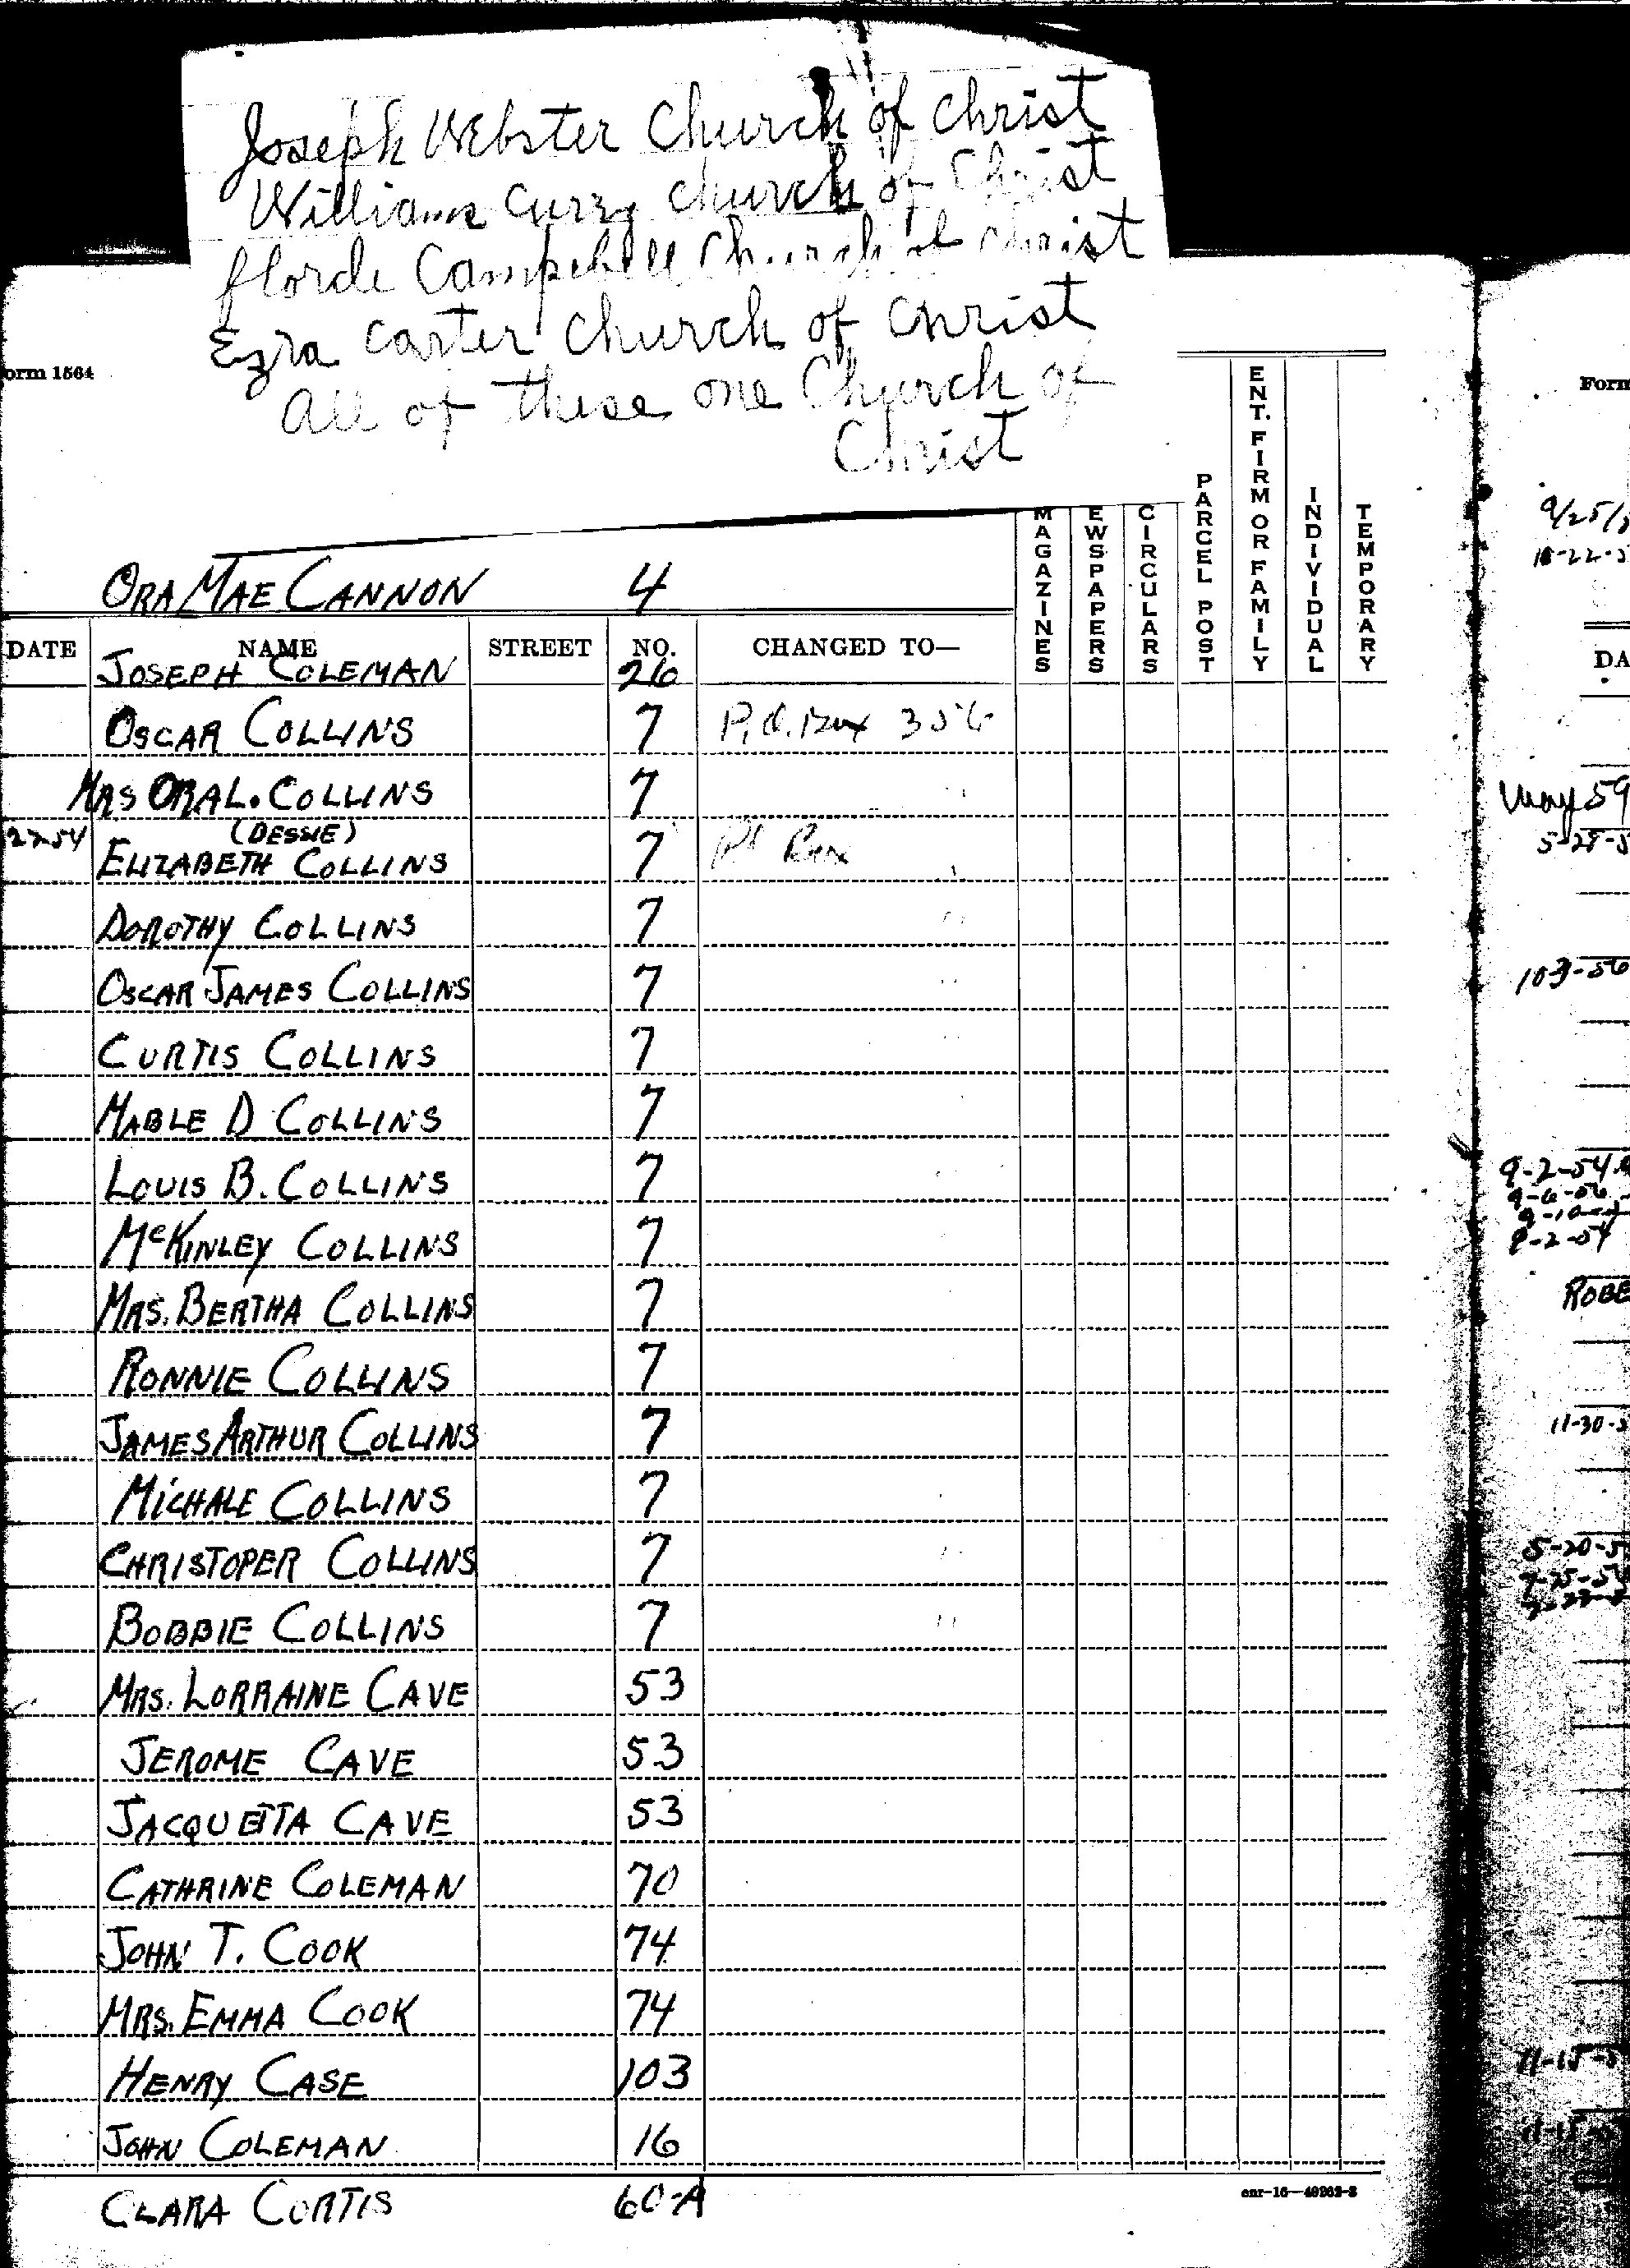 Joseph Webster Church of Christ
Williams Curry Church of Christ
Florde Campebell Church of Christ
Ezra Carter Church of Christ
All of these one Church of
Christ
orm 1564
Form
MAGAZINES
EWSPAPERS
CIRCULARS
PARCEL POST
ENT. FIRM OR FAMILY
INDIVIDUAL
TEMPORARY
ORA MAE CANNON 4
DATE NAME STREET NO. CHANGED TO—
DA
JOSEPH COLEMAN 26
OSCAR COLLINS 7 P.O. Box 356
MRS ORA L. COLLINS 7 "
(DESSIE)
ELIZABETH COLLINS 7 Box
DOROTHY COLLINS 7 "
OSCAR JAMES COLLINS 7 "
CURTIS COLLINS 7 "
MABLE D COLLINS 7
LOUIS B. COLLINS 7 "
McKINLEY COLLINS 7
MRS. BERTHA COLLINS 7
RONNIE COLLINS 7
JAMES ARTHUR COLLINS 7
MICHALE COLLINS 7
CHRISTOPER COLLINS 7 "
BOBBIE COLLINS 7 "
MRS. LORRAINE CAVE 53
JEROME CAVE 53
JACQUETTA CAVE 53
CATHRINE COLEMAN 70
JOHN T. COOK 74
MRS. EMMA COOK 74
HENRY CASE 103
JOHN COLEMAN 16
CLARA CURTIS 60-A
9/25/
May 59
9-2-54
9-2-54
ROBE
11-30-5